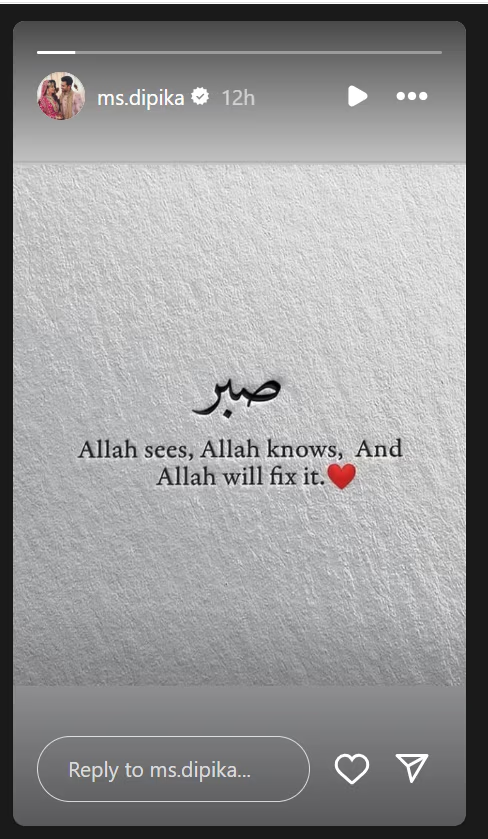 ms.dipika 12h
صبر
Allah sees, Allah knows, And
Allah will fix it.❤️
Reply to ms.dipika...